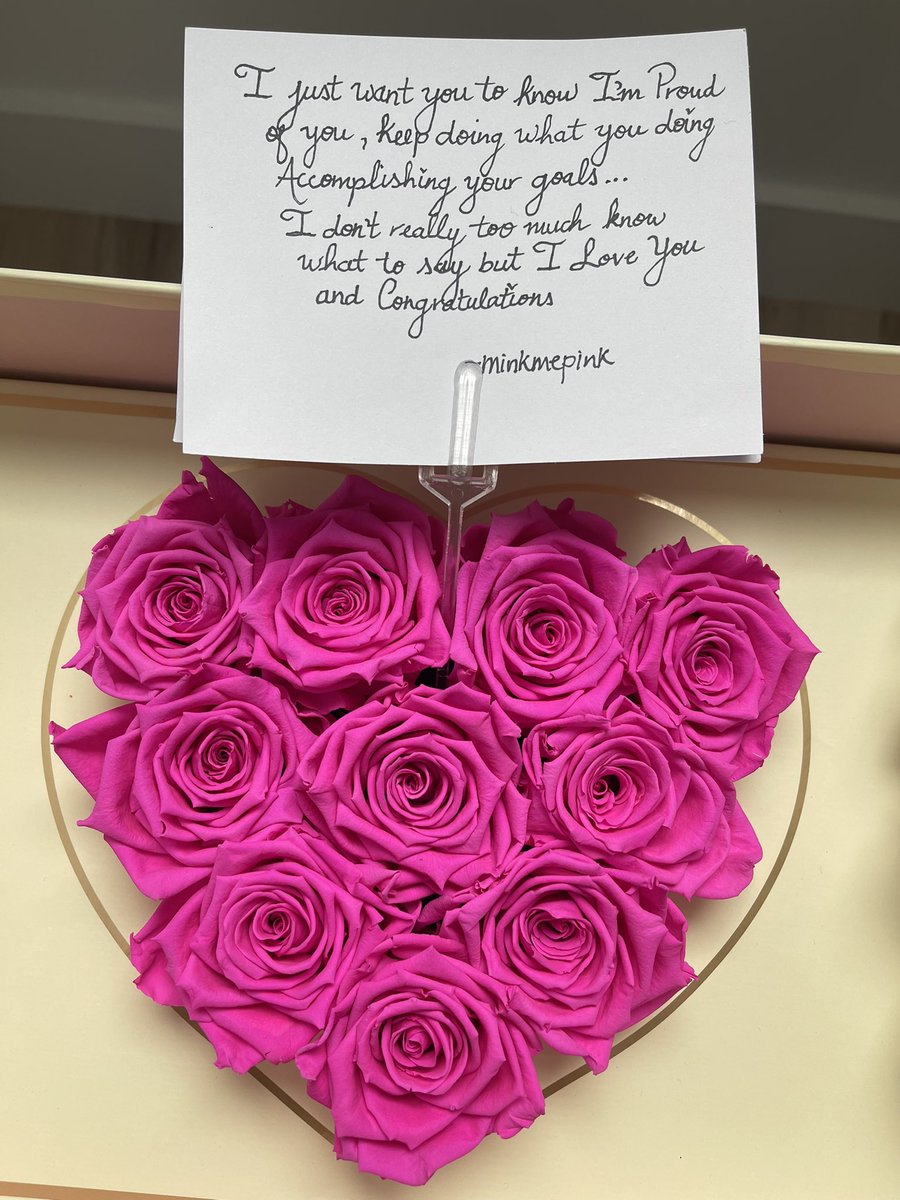 I just want you to know I'm Proud
of you, keep doing what you doing
Accomplishing your goals...
I don't really too much know
what to say but I Love You
and Congratulations
-minkmepink